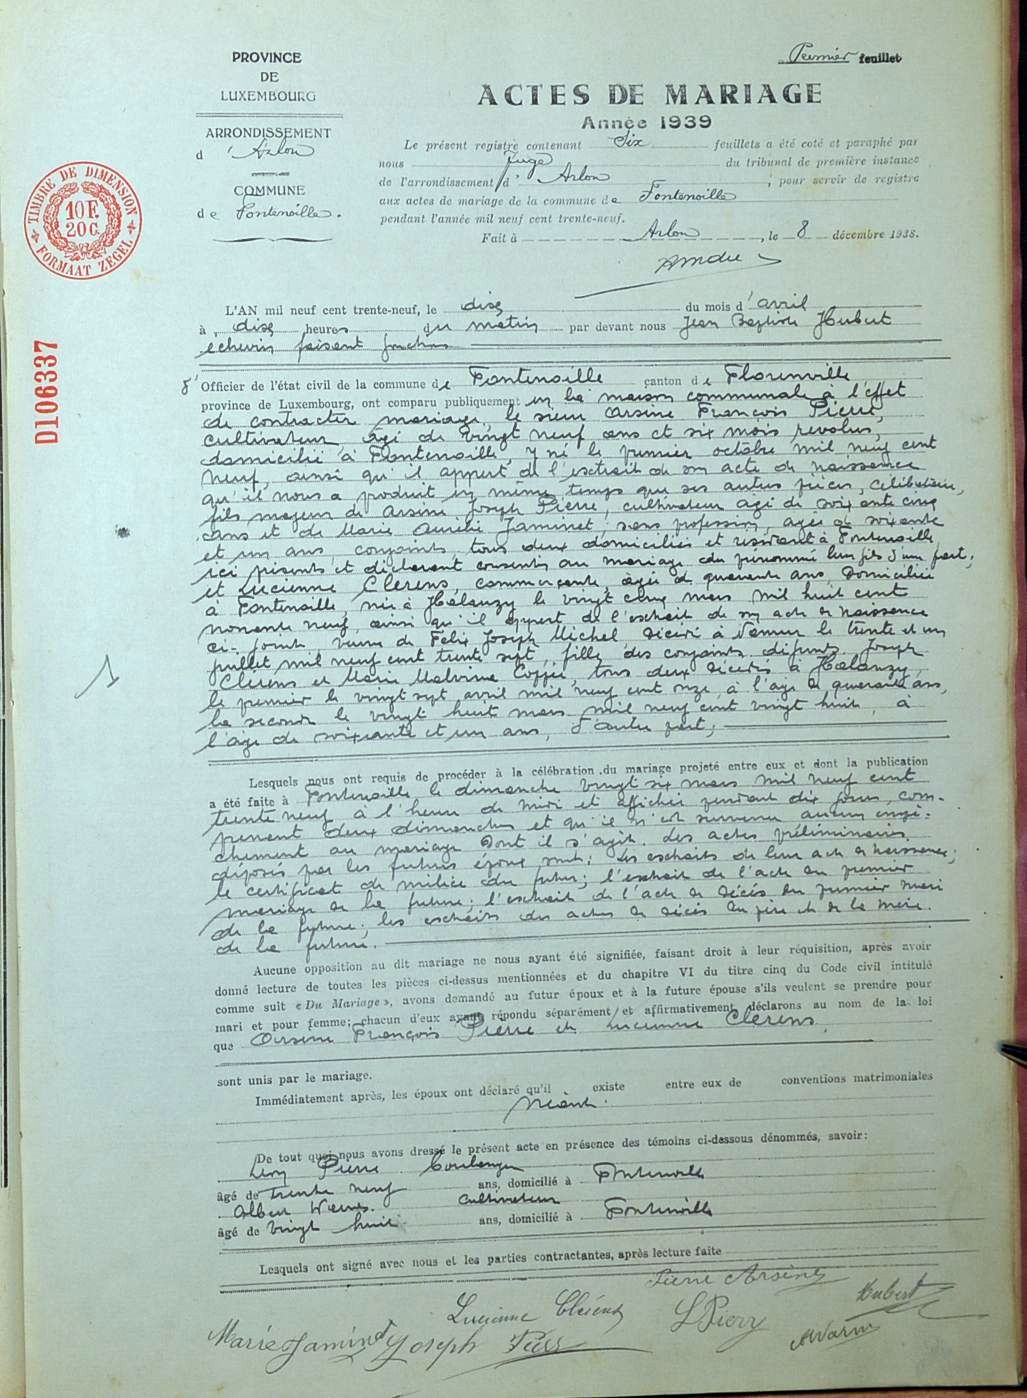 PROVINCE
DE
LUXEMBOURG
ARRONDISSEMENT
d'Arlon
COMMUNE
de Fontenoille.
TIMBRE DE DIMENSION
10 F.
20 C.
FORMAAT ZEGEL
D106337
1
Premier feuillet
ACTES DE MARIAGE
Année 1939
Le présent registre contenant Six feuillets a été coté et paraphé par
nous Juge du tribunal de première instance
de l'arrondissement d'Arlon, pour servir de registre
aux actes de mariage de la commune de Fontenoille
pendant l'année mil neuf cent trente-neuf.
Fait à Arlon, le 8 décembre 1938.
L'AN mil neuf cent trente-neuf, le dix du mois d'avril
à dix heures du matin par devant nous Jean Baptiste Hubert
échevin faisant fonctions
d'Officier de l'état civil de la commune de Fontenoille canton de Florenville
province de Luxembourg, ont comparu publiquement en la maison communale à l'effet
de contracter mariage, le sieur Arsène François Pierre,
cultivateur âgé de vingt neuf ans et six mois revolus,
domicilié à Fontenoille, y né le premier octobre mil neuf cent
neuf, ainsi qu'il appert de l'extrait de son acte de naissance
qu'il nous a produit en même temps que ses autres pièces, célibataire,
fils majeur de Arsène Joseph Pierre, cultivateur âgé de soixante cinq
ans et de Marie Aurélie Jaminet sans profession, agée de soixante
et un ans, conjoints, tous deux domiciliés et résidant à Fontenoille,
ici présents et déclarant consentir au mariage du prénommé leur fils d'une part;
et Lucienne Clerens, commerçante, âgée de quarante ans, domiciliée
à Fontenoille, née à Halanzy le vingt cinq mars mil huit cent
nonante neuf, ainsi qu'il appert de l'extrait de son acte de naissance
ci-joint, veuve de Felix Joseph Michel décédé à Namur le trente et un
juillet mil neuf cent trente sept, fille des conjoints défunts Joseph
Clerens et Marie Malvina, tous deux décédés à Halanzy,
le premier le vingt sept avril mil neuf cent onze, à l'âge de quarante ans,
la seconde le vingt huit mars mil neuf cent vingt huit, à
l'âge de soixante et un ans, d'autre part,
Lesquels nous ont requis de procéder à la célébration du mariage projeté entre eux et dont la publication
a été faite à Fontenoille le dimanche vingt six mars mil neuf cent
trente neuf à l'heure de midi et affichée pendant dix jours, com-
prenant deux dimanches et qu'il n'est survenu aucun empê-
chement au mariage dont il s'agit. Les actes préliminaires
déposés par les futurs époux sont: les extraits de leur acte de naissance;
le certificat de milice du futur; l'extrait de l'acte du premier
mariage de la future; l'extrait de l'acte de décès du premier mari
de la future; les extraits des actes de décès du père et de la mère
de la future.
Aucune opposition au dit mariage ne nous ayant été signifiée, faisant droit à leur réquisition, après avoir
donné lecture de toutes les pièces ci-dessus mentionnées et du chapitre VI du titre cinq du Code civil intitulé
comme suit « Du Mariage », avons demandé au futur époux et à la future épouse s'ils veulent se prendre pour
mari et pour femme; chacun d'eux ayant répondu séparément et affirmativement, déclarons au nom de la loi
que Arsène François Pierre et Lucienne Clerens,
sont unis par le mariage.
Immédiatement après, les époux ont déclaré qu'il existe entre eux de conventions matrimoniales
Néant.
De tout quoi nous avons dressé le présent acte en présence des témoins ci-dessous dénommés, savoir:
Léon Pierre
âgé de trente neuf ans, domicilié à Fontenoille
Albert cultivateur
âgé de vingt huit ans, domicilié à Fontenoille
Lesquels ont signé avec nous et les parties contractantes, après lecture faite
Pierre Arsène
Lucienne Clerens
Hubert
Marie Jaminet Joseph